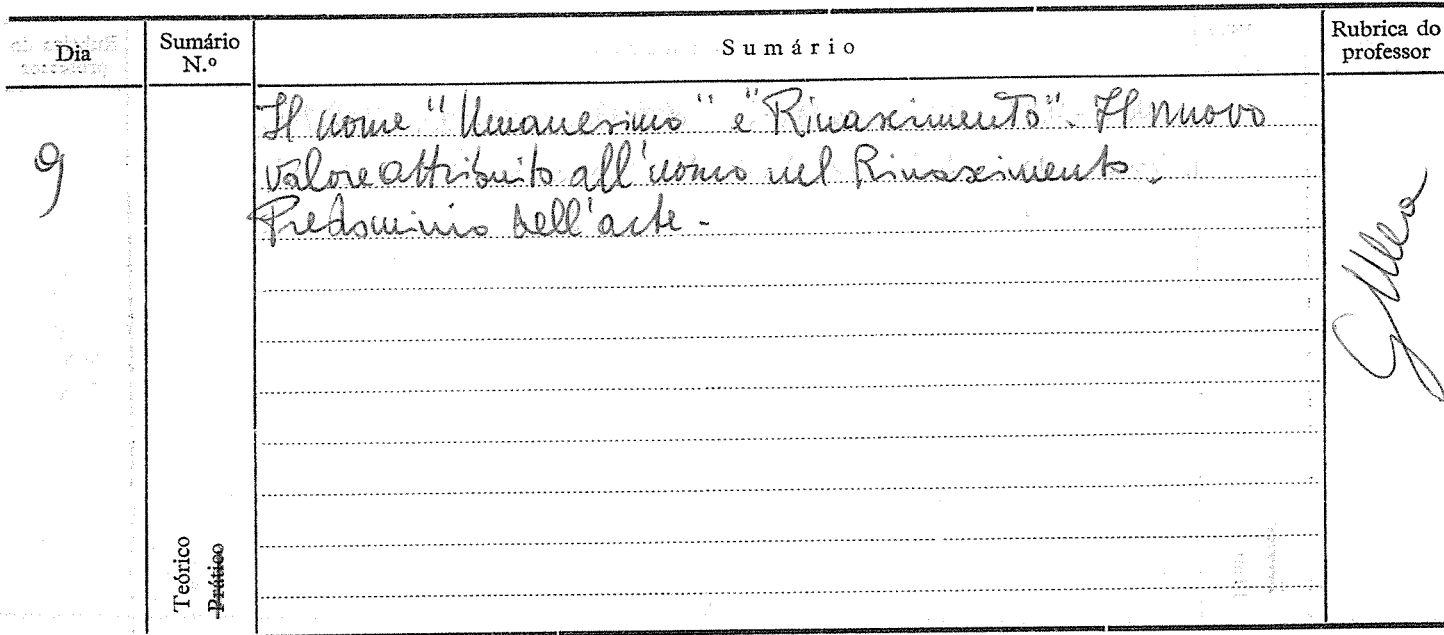 Dia
Sumário N.º
Sumário
Rubrica do professor
9
Il nome "Umanesimo" e "Rinascimento". Il nuovo
valore attribuito all'uomo nel Rinascimento.
Predominio dell'arte.
Teórico
Prático